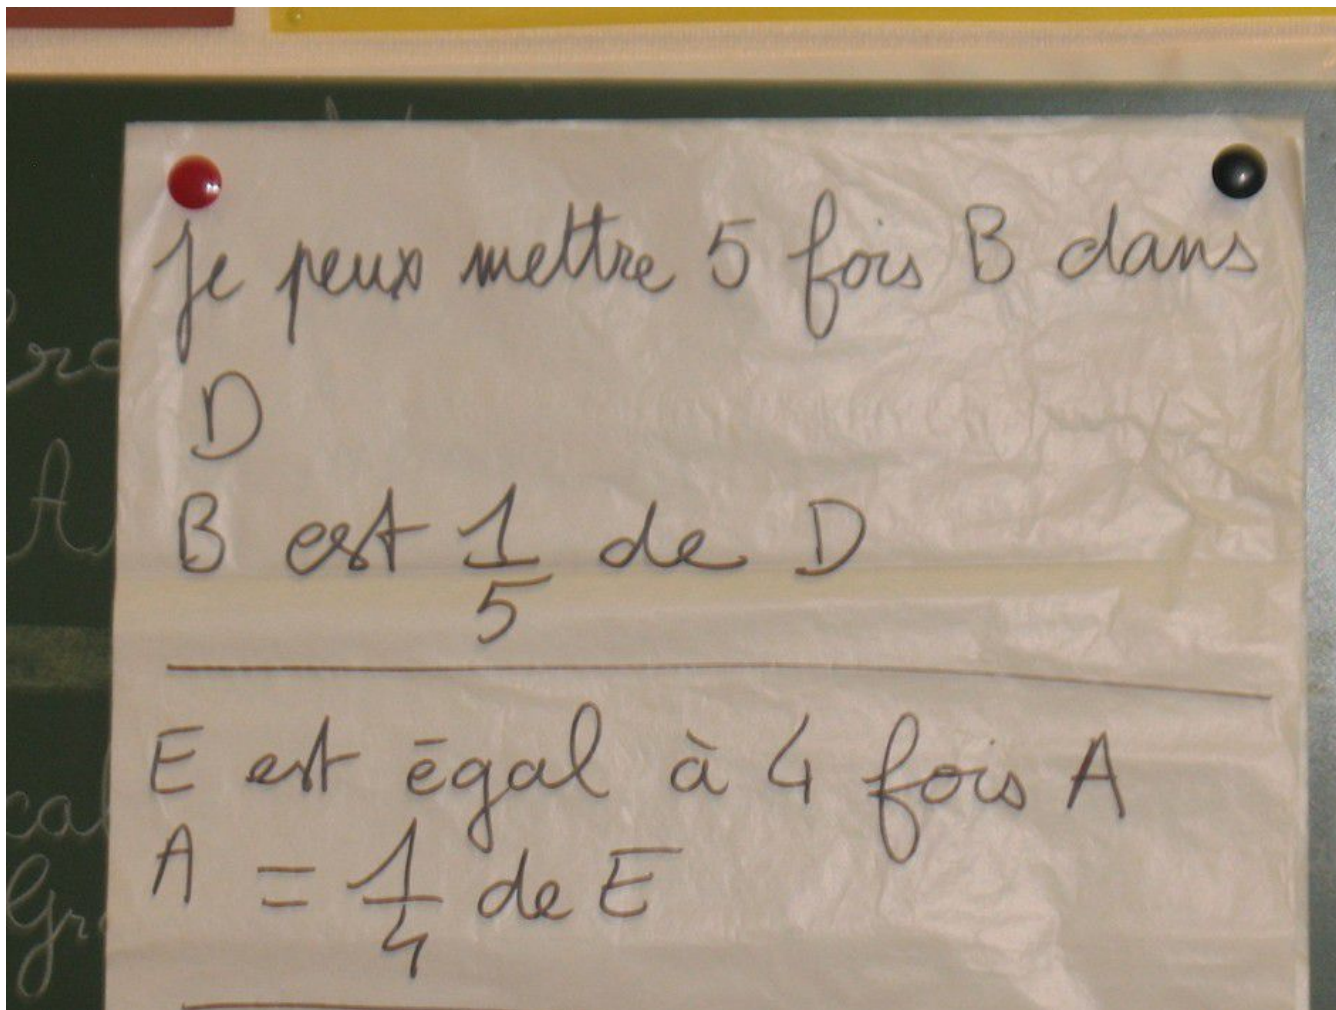 Je peux mettre 5 fois B dans
D
B est 1/5 de D
E est égal à 4 fois A
A = 1/4 de E
A